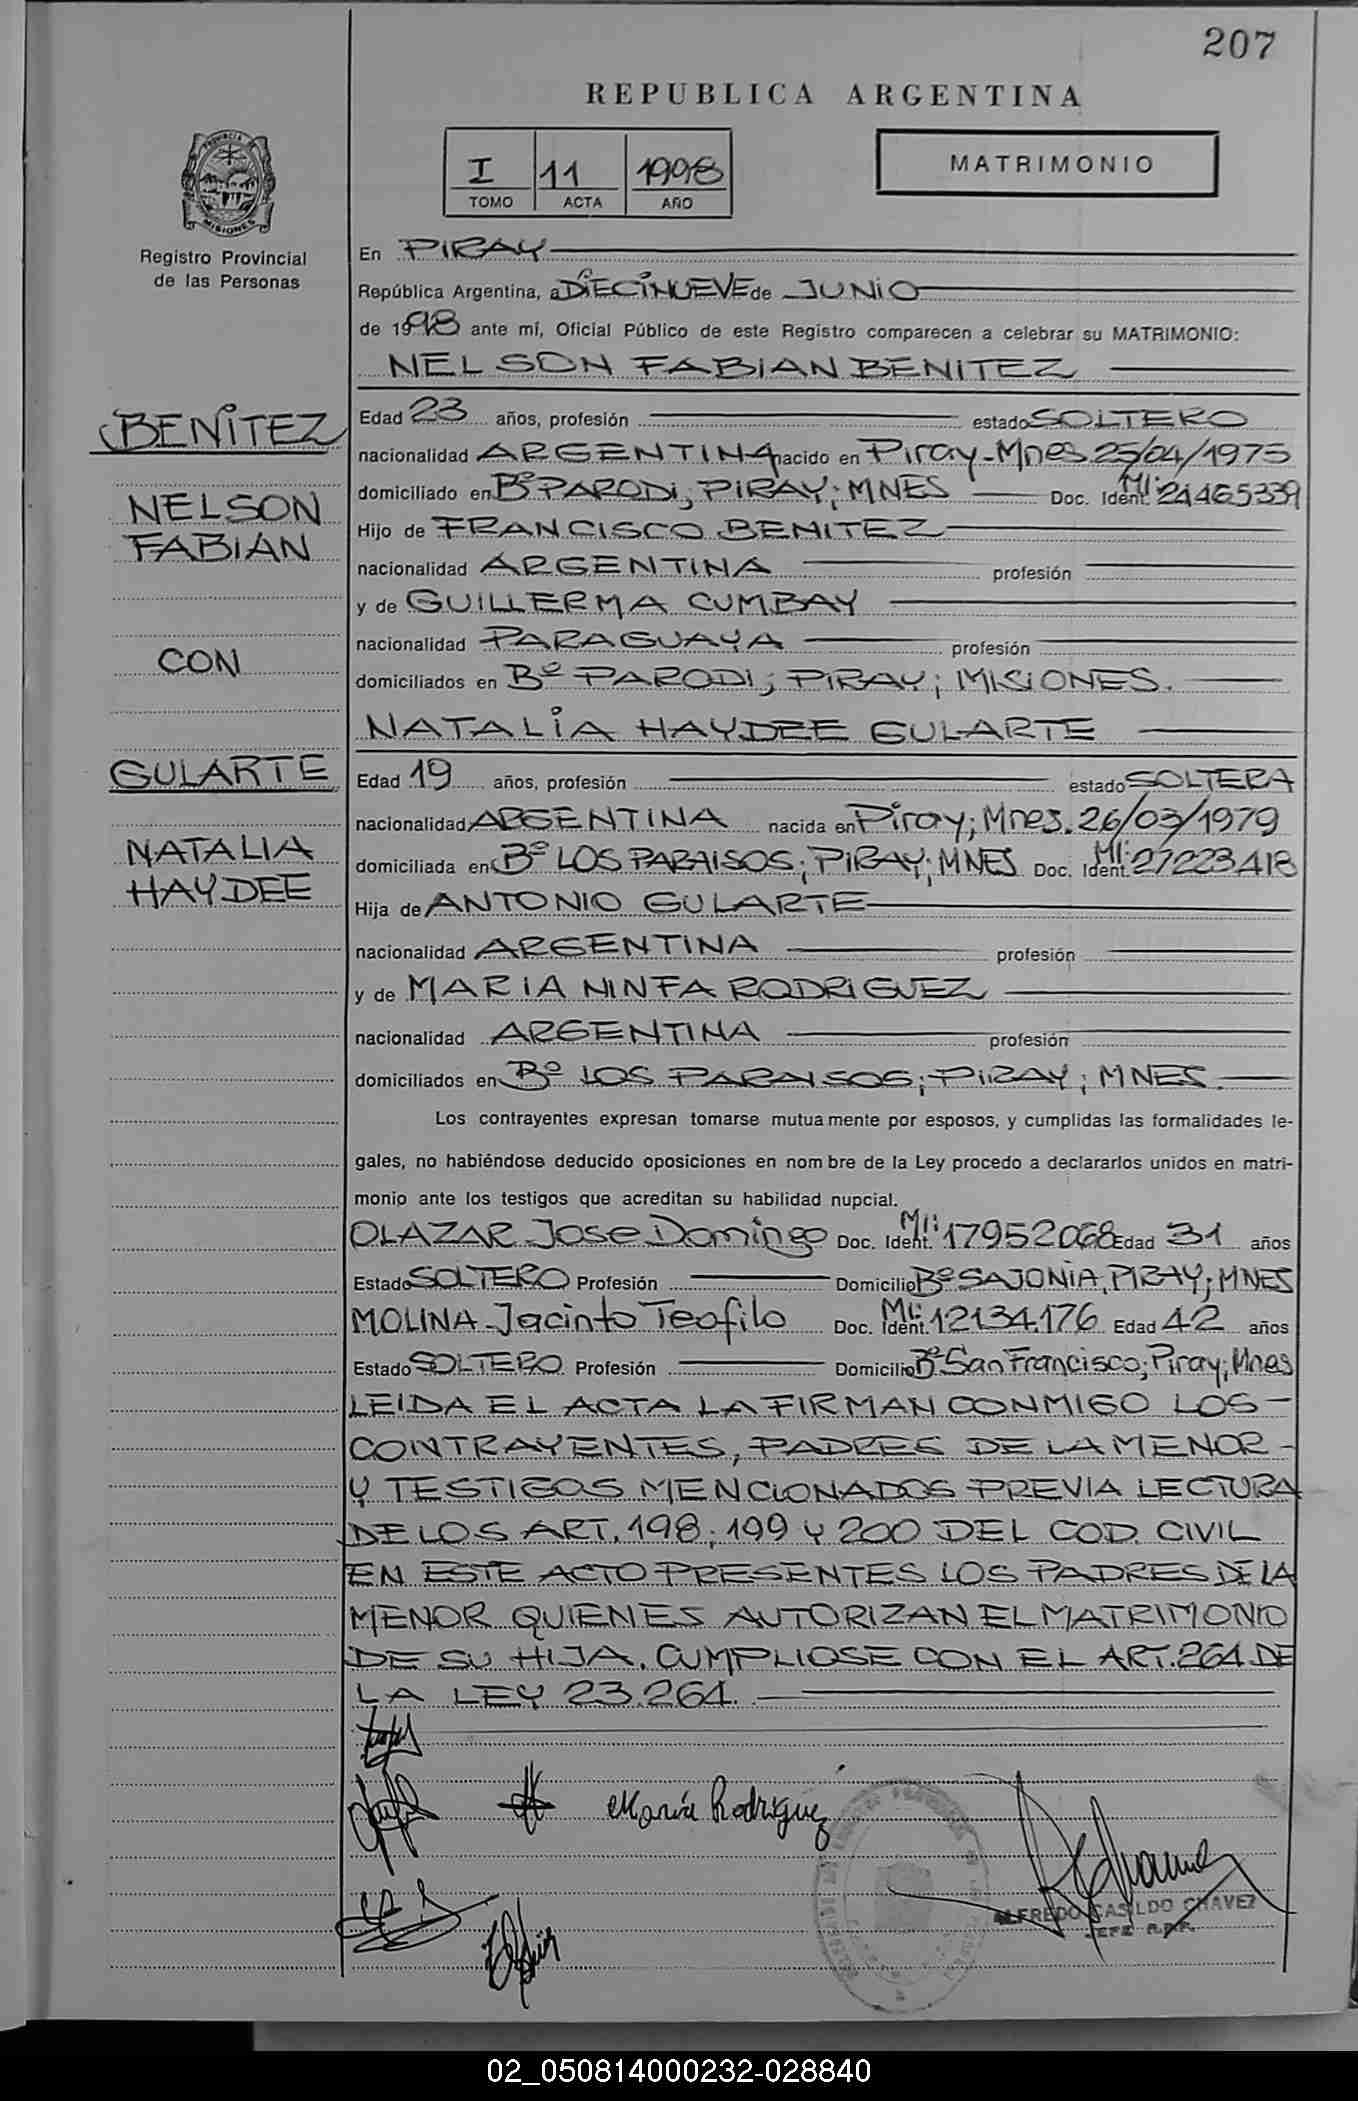 207
REPUBLICA ARGENTINA
I 11 1998
TOMO ACTA AÑO
MATRIMONIO
PROVINCIA DE MISIONES
Registro Provincial
de las Personas
En PIRAY
República Argentina, a DIECINUEVE de JUNIO
de 1998 ante mí, Oficial Público de este Registro comparecen a celebrar su MATRIMONIO:
NELSON FABIAN BENITEZ
Edad 23 años, profesión estado SOLTERO
nacionalidad ARGENTINA nacido en Piray-Mnes 25/04/1975
domiciliado en Bº PARODI; PIRAY; MNES Doc. Ident. MI: 24465339
Hijo de FRANCISCO BENITEZ
nacionalidad ARGENTINA profesión
y de GUILLERMA CUMBAY
nacionalidad PARAGUAYA profesión
domiciliados en Bº PARODI; PIRAY; MISIONES.
NATALIA HAYDEE GULARTE
Edad 19 años, profesión estado SOLTERA
nacionalidad ARGENTINA nacida en Piray; Mnes. 26/03/1979
domiciliada en Bº LOS PARAISOS; PIRAY; MNES Doc. Ident. MI: 27223418
Hija de ANTONIO GULARTE
nacionalidad ARGENTINA profesión
y de MARIA NINFA RODRIGUEZ
nacionalidad ARGENTINA profesión
domiciliados en Bº LOS PARAISOS; PIRAY; MNES.
Los contrayentes expresan tomarse mutuamente por esposos, y cumplidas las formalidades le-
gales, no habiéndose deducido oposiciones en nombre de la Ley procedo a declararlos unidos en matri-
monio ante los testigos que acreditan su habilidad nupcial.
OLAZAR Jose Domingo Doc. Ident. MI: 17952068 Edad 31 años
Estado SOLTERO Profesión Domicilio Bº SAJONIA, PIRAY; MNES
MOLINA Jacinto Teofilo Doc. Ident. MI: 12134.176 Edad 42 años
Estado SOLTERO Profesión Domicilio Bº San Francisco; Piray; Mnes
LEIDA EL ACTA LA FIRMAN CONMIGO LOS-
CONTRAYENTES, PADRES DE LA MENOR-
Y TESTIGOS MENCIONADOS PREVIA LECTURA
DE LOS ART. 198; 199 Y 200 DEL COD. CIVIL
EN ESTE ACTO PRESENTES LOS PADRES DE LA
MENOR QUIENES AUTORIZAN EL MATRIMONIO
DE SU HIJA. CUMPLIOSE CON EL ART. 264 DE
LA LEY 23.264.
María Rodriguez
ALFREDO CASILDO CHAVEZ
JEFE R.P.P.
BENITEZ
NELSON
FABIAN
CON
GULARTE
NATALIA
HAYDEE
02_050814000232-028840